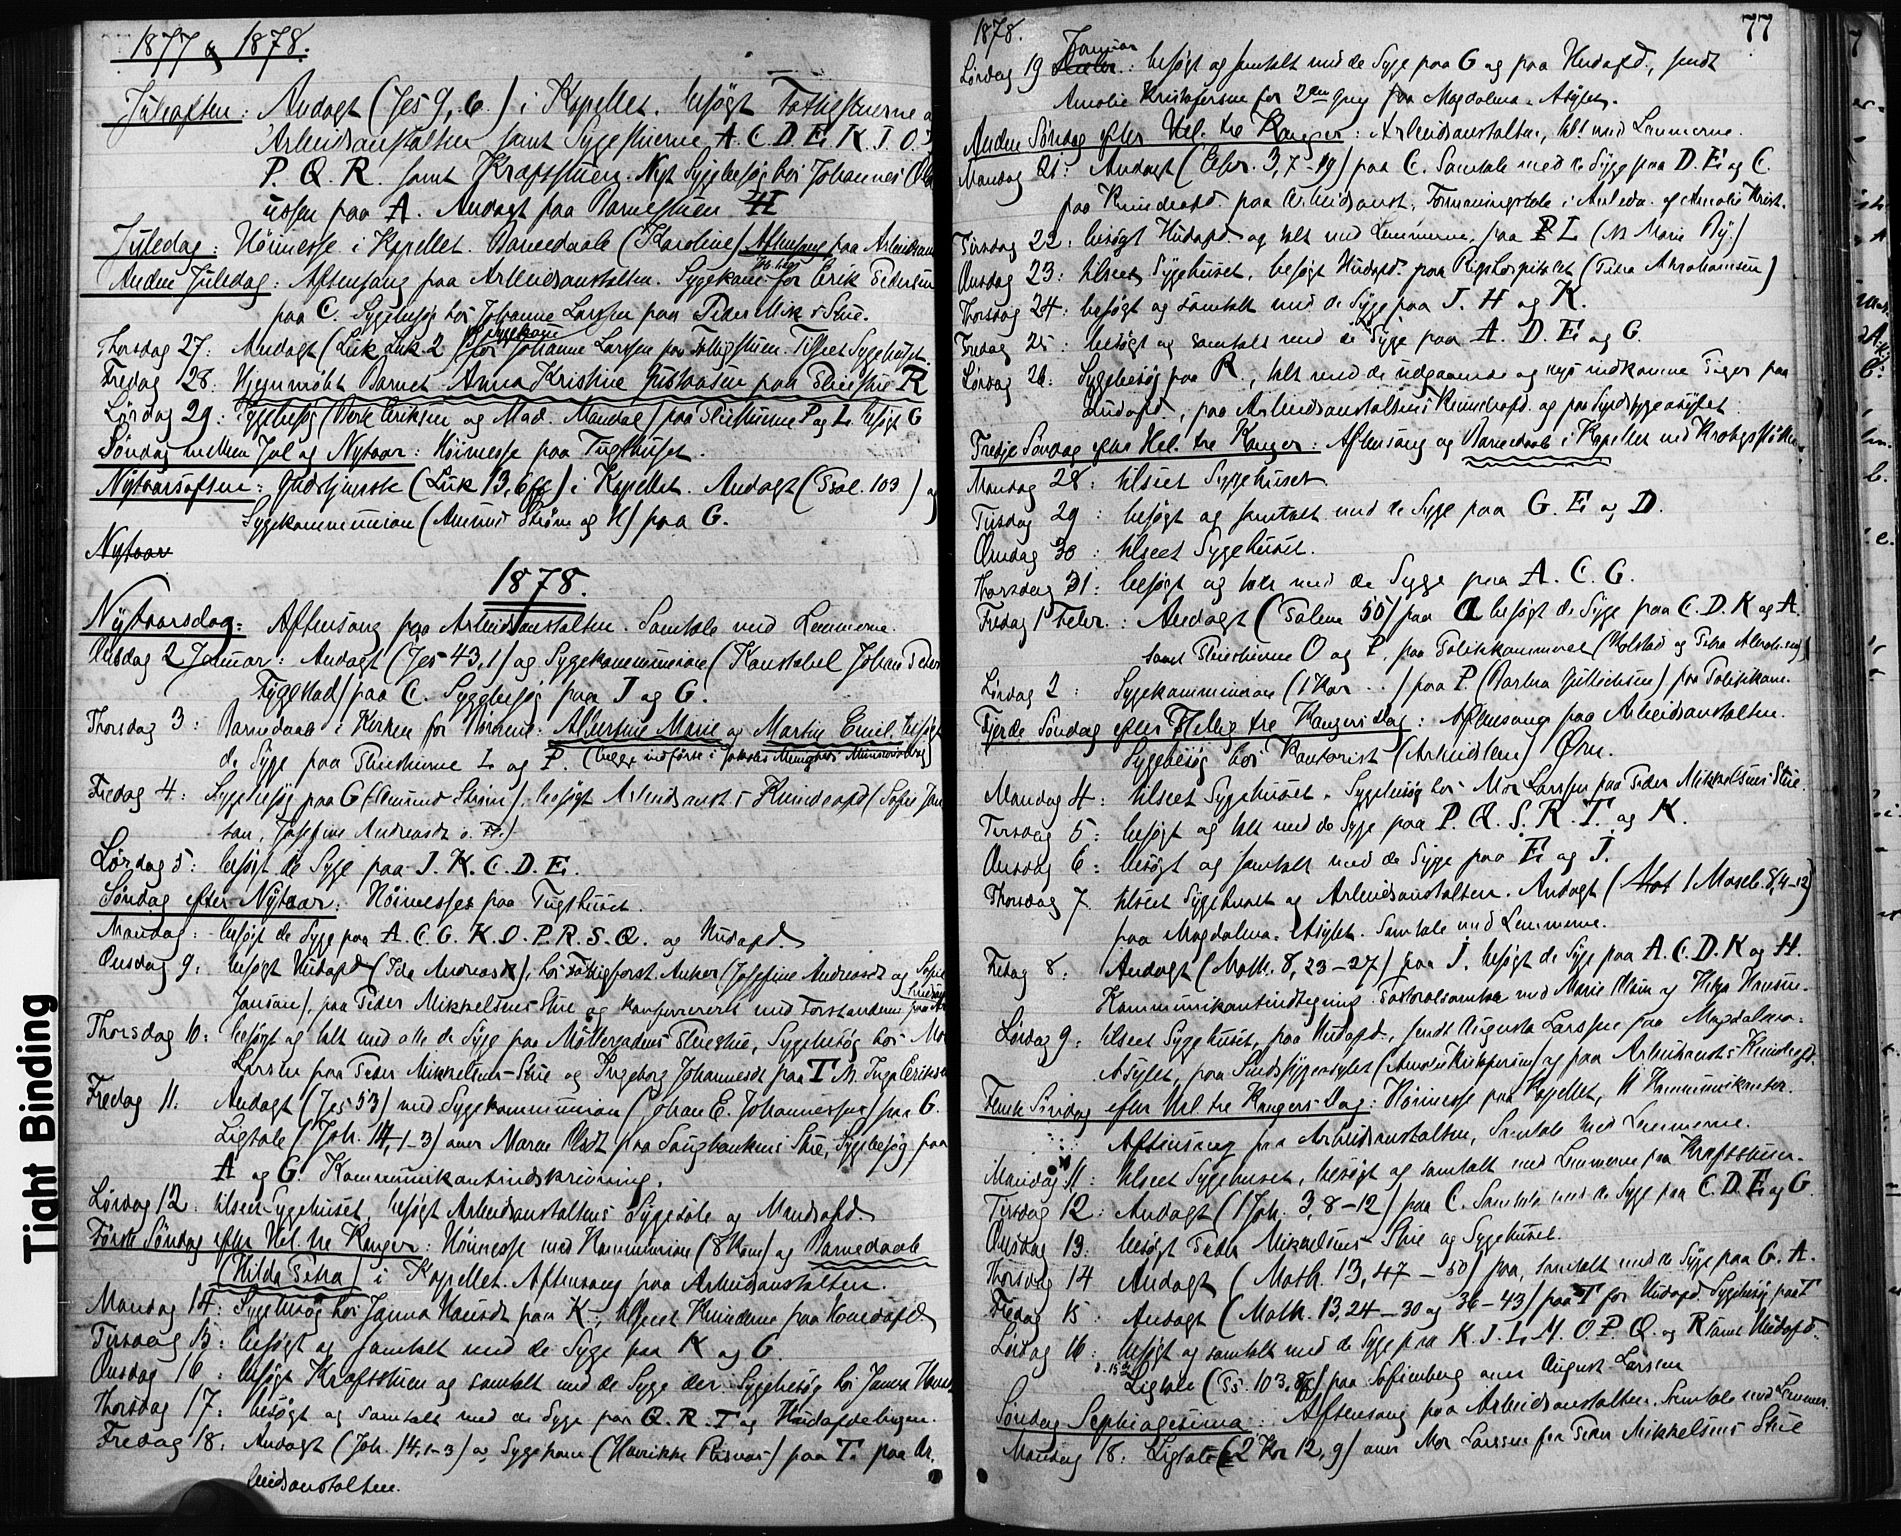 1877 & 1878.
Juleaften: Andagt (Jes 9, 6.) i Kapellet. besøgt Fattigstuerne
Arbeidsanstalten samt Sygestuerne A. C. D. E. K. J. O.
P. Q. R. samt Kræftstuen. Nyt Sygebesøg hos Johannes
ussen paa A. Andagt paa Barnestuen H
Juledag: Höimesse i Kapellet. Barnedaab (Karoline) Aftensang paa Arbeidsans
Anden Juledag: Aftensang paa Arbeidsanstalten. Sygekom. for Erik Pedersen
paa C. Sygebesøg hos Johanne Larssen paa Peder Mik.s Stue.
Thorsdag 27: Andagt (Luk Luk 2) Sygekom hos Johanne Larssen paa Fattigstuen. Tilseet Sygehuset.
Fredag 28. Hjemmedøbt Barnet Anna Kristine Gustavsen paa Pleiestue R
Lørdag 29: Sygebesøg ( Eriksen og Mad. Mandal) paa Pleiestuerne P og L. besøgt G
Søndag mellem Jul og Nytaar: Höimesse paa Tugthuset.
Nytaarsaften: Gudstjeneste (Luk 13, 6ff) i Kapellet. Andagt (Psal. 103) og
Sygekommunion (Amund Strøm og K) paa G.
Nytaar
1878.
Nytaarsdag: Aftensang paa Arbeidsanstalten. Samtale med Lemmerne.
Onsdag 2 Januar: Andagt (Jes 43,1) og Sygekommunion (Konstabel Johan Peder
Fyggstad) paa C. Sygebesøg paa J og G.
Thorsdag 3: Barnedaab i Kirken for Börnene Albertine Marie og Martin Emil. besøgt
de Syge paa Pleiestuerne L og P. (begge indførte i Jakobs Menigheds Ministerialbog)
Fredag 4: Sygebesøg paa G (Amund Strøm). besøgt Arbeidsanst.s Kvindeafd. (Sofie Jan
san, Josefine Andreasdt o. Fl.)
Lørdag 5: besøgt de Syge paa J. K. C. D. E.
Søndag efter Nytaar: Höimesse paa Tugthuset.
Mandag: besøgt de Syge paa A. C. G. K. O. P. R. S. Q. og Hudafd.
Onsdag 9: besøgt Hudafd (Ida Andreasdt), hos Fattigforst. Anker (Josefine Andreasdt og Sofie
Jansan), paa Peder Mikkelsens Stue og konfererert med Forstanderen
Thorsdag 10: besøgt og talt med alle de Syge paa Møllergadens Pleiestue, Sygebesøg hos Mor
Larsen paa Peder Mikkelsens-Stue og Ingeborg Johannesdt paa T. N. Inga Eriksen
Fredag 11. Andagt (Jes 53) med Sygekommunion (Johan E. Johannessen) paa G.
Ligtale (Joh. 14,1-3) over Maren Olsdt paa Saugbankens Stue, Sygebesøg paa
A og G. Kommunikantindskrivning.
Lørdag 12: tilseet Sygehuset, besøgt Arbeidsanstaltens Sygesale og Mandsafd.
Første Søndag efter Hel. tre Konger: Höimesse med Kommunion (8 Kom) og Barnedaab
(Hilda Petra) i Kapellet. Aftensang paa Arbeidsanstalten.
Mandag 14: Sygebesøg hos Janna Hansdt paa K., tilseet Kvinderne paa Hovedafd.
Tirsdag 15: besøgt og samtalt med de Syge paa K og G.
Onsdag 16: besøgt Kræftstuen og samtalt med de Syge der. Sygebesøg hos Janna Hansdt
Thorsdag 17: besøgt og samtalt med de Syge paa Q. R. T og Hudafdelingen.
Fredag 18: Andagt (Joh. 14,1-3) og Sygekom (Henrikke ) paa T. paa Ar.
beidsanstalten.
1878. 77
Lørdag 19 Januar: besøgt og samtalt med de Syge paa G og paa Hudafd., sendt
Amalie Kristofersen for 2den Gang fra Magdalena-Asylet.
Anden Søndag efter Hel. tre Konger: Arbeidsanstalten, talt med Lemmerne.
Mandag 21: Andagt (Ebr. 3,7-19) paa C. Samtale med de Syge paa D. E og C.
paa Kvindeafd. paa Arbeidsanst. Formaningstale i Anledn. af Amalie Krist.
Tirsdag 22: besøgt Hudafd. og talt med Lemmerne, paa P L (N. Marie Ny.)
Onsdag 23: tilseet Sygehuset, besøgt Hudafd. paa Rigshospitalet (Petra Abrahamsen)
Thorsdag 24: besøgt og samtalt med de Syge paa J. H og K.
Fredag 25: besøgt og samtalt med de Syge paa A. D. E og G.
Lørdag 26: Sygebesøg paa R., talt med de udgaaende og nys indkomne Piger paa
Hudafd, paa Arbeidsanstaltens Kvindeafd. og paa Sindssygeasylet.
Tredje Søndag efter Hel. tre Konger: Aftensang og Barnedaab i Kapellet ved Krohgstøtten.
Mandag 28: tilseet Sygehuset
Tirsdag 29: besøgt og samtalt med de Syge paa G. E og D.
Onsdag 30: tilseet Sygehuset.
Thorsdag 31: besøgt og talt med de Syge paa A. C. G.
Fredag 1 Febr.: Andagt (Salme 55) paa A besøgt de Syge paa C. D. K og A.
samt Pleiestuerne O og P. paa Politikammeret (Holstad og Petra Abrahamsen)
Lørdag 2: Sygekommunion (1 Kor ..) paa P. (Barbra Gullichsen) paa Politikam.
Fjerde Søndag efter Hellig tre Kongers Dag: Aftensang paa Arbeidsanstalten.
Sygebesøg hos Kontorist (Arbeidslem) Ørn.
Mandag 4: tilseet Sygehuset. Sygebesøg hos Mor Larssen paa Peder Mikkelsens Stue.
Tirsdag 5: besøgt og talt med de Syge paa P. Q. S. R. T. og K.
Onsdag 6: besøgt og samtalt med de Syge paa E og J.
Thorsdag 7 tilseet Sygehuset og Arbeidsanstalten. Andagt ( 1 Moseb. 8,4-12)
paa Magdalena-Asylet. Samtale med Lemmerne.
Fredag 8: Andagt (Math. 8, 23-27) paa J. besøgt de Syge paa A. C. D. K og H.
Kommunikantindtegning. Pastoralsamtale med Marie Olsen og Helga Hansen.
Lørdag 9. tilseet Sygehuset, paa Hudafd., sendt Augusta Larssen fra Magdalena-
Asylet, paa Sindssygeasylet (Amalie Kristofersen) og paa Arbeidsanst.s Kvindeafd.
Femte Søndag efter Hel. tre Kongers Dag: Höimesse paa Kapellet, 11 Kommunikanter.
Aftensang paa Arbeidsanstalten, Samtale med Lemmerne.
Mandag 11: tilseet Sygehuset, besøgt og samtalt med Lemmerne paa Kræftstuen.
Tirsdag 12: Andagt (1 Joh. 3, 8-12) paa C. Samtale med de Syge paa C. D. E og G.
Onsdag 13: besøgt Peder Mikkelsens Stue og Sygehuset.
Thorsdag 14 Andagt (Math. 13, 47-50) paa, samtalt med de Syge paa G. A.
Fredag 15 Andagt (Math. 13,24-30 og 36-43) paa T for Hudafd. Sygebesøg paa T
Lørdag 16: besøgt og samtalt med de Syge paa K. J. L. M. O. P. Q. og R samt Hudafd.
d. 15de Ligtale (Ps. 103, ) paa Sofienberg over August Larssen
Søndag Septuagesima: Aftensang paa Arbeidsanstalten. Samtale med Lemmer.
Mandag 18: Ligtale (2 Kor 12,9) over Mor Larssen fra Peder Mikkelsens Stue
Tight Binding